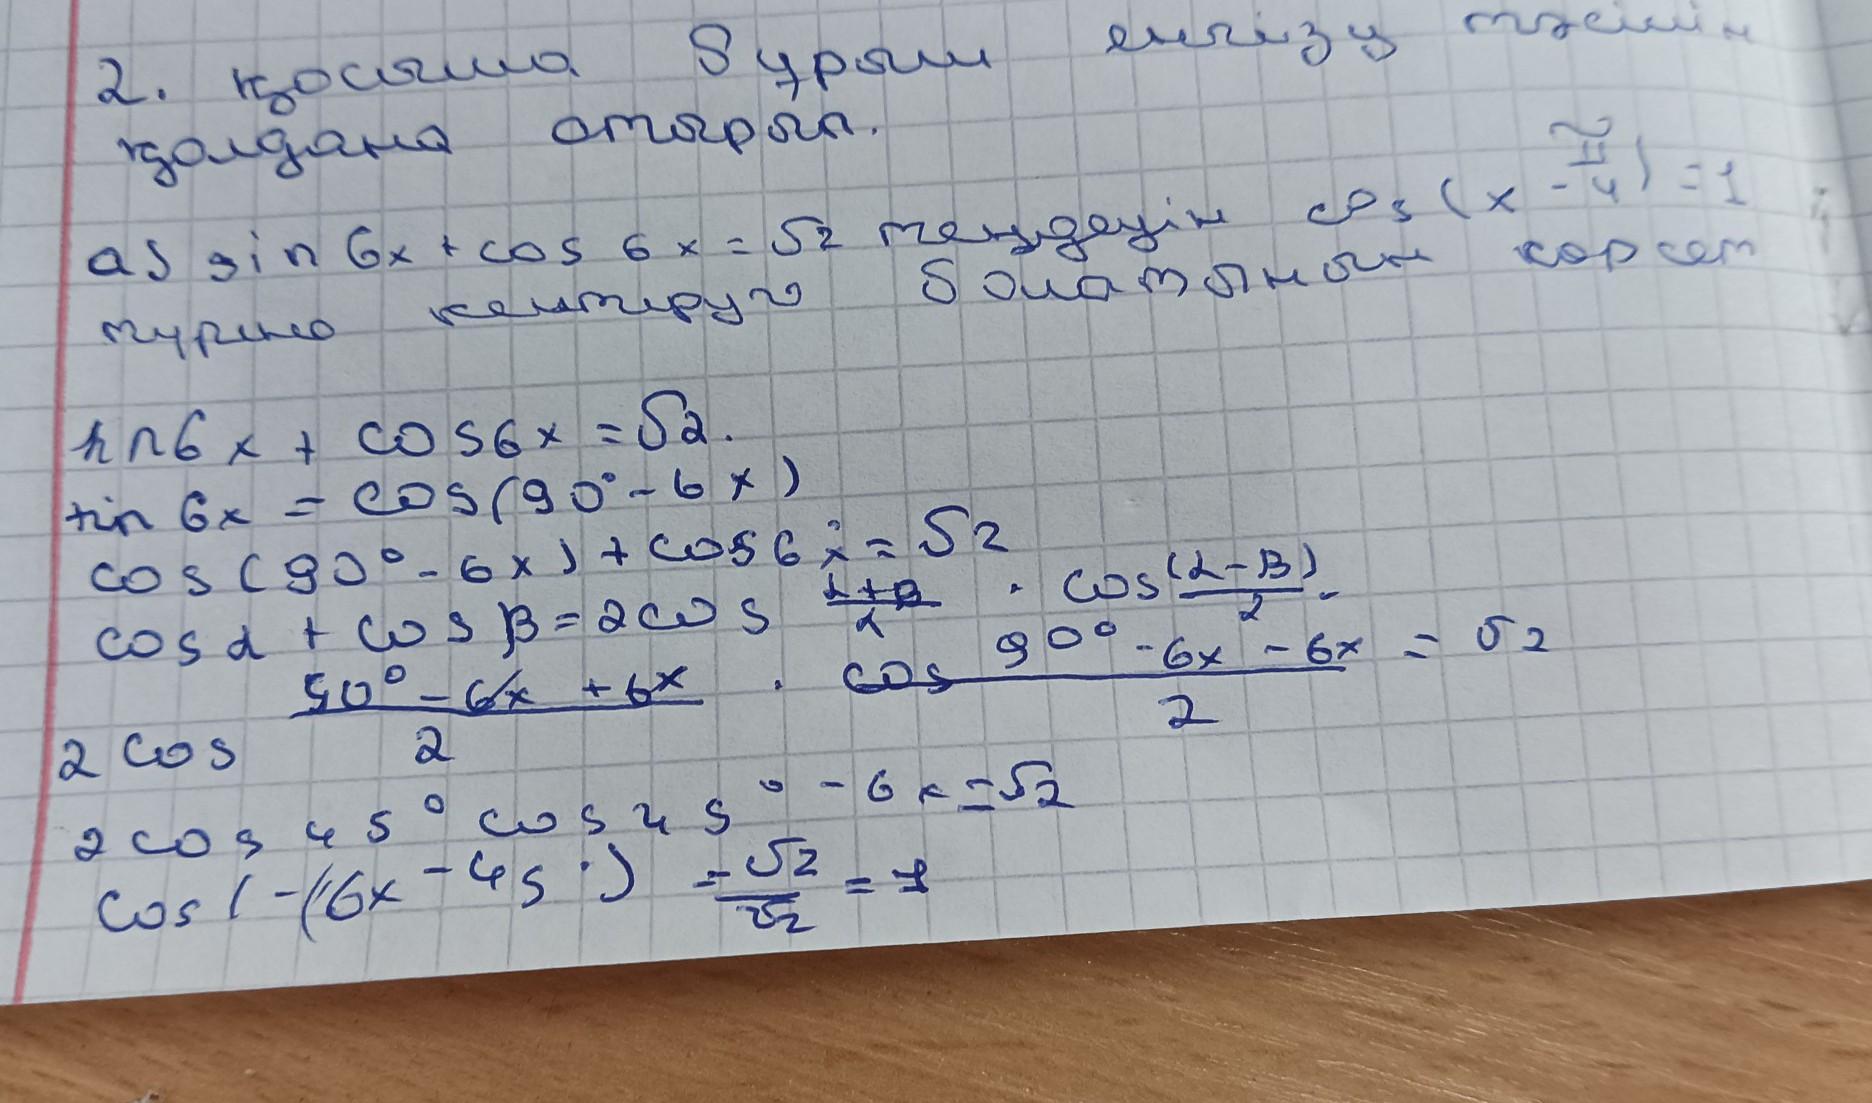 2. қосымша бұрыш енгізу тәсілін
қолдана отырып.
а) sin 6x + cos 6x = √2 теңдеуін cos (x - π/4) = 1
түріне келтіруге болатынын көрсет
sin 6x + cos 6x = √2.
sin 6x = cos(90° - 6x)
cos (90° - 6x) + cos 6x = √2
cos α + cos β = 2 cos (α+β)/2 · cos (α-β)/2.
2 cos (90° - 6x + 6x)/2 · cos (90° - 6x - 6x)/2 = √2
2 cos 45° cos 45° - 6x = √2
cos (-(6x - 45°) = √2/√2 = 1